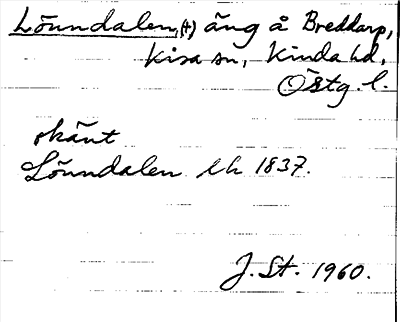 Lönndalen, (+) äng å Breddarp,
Kisa sn, Kinda hd,
Östg. l.
okänt
Lönndalen lh 1837.
J. St. 1960.